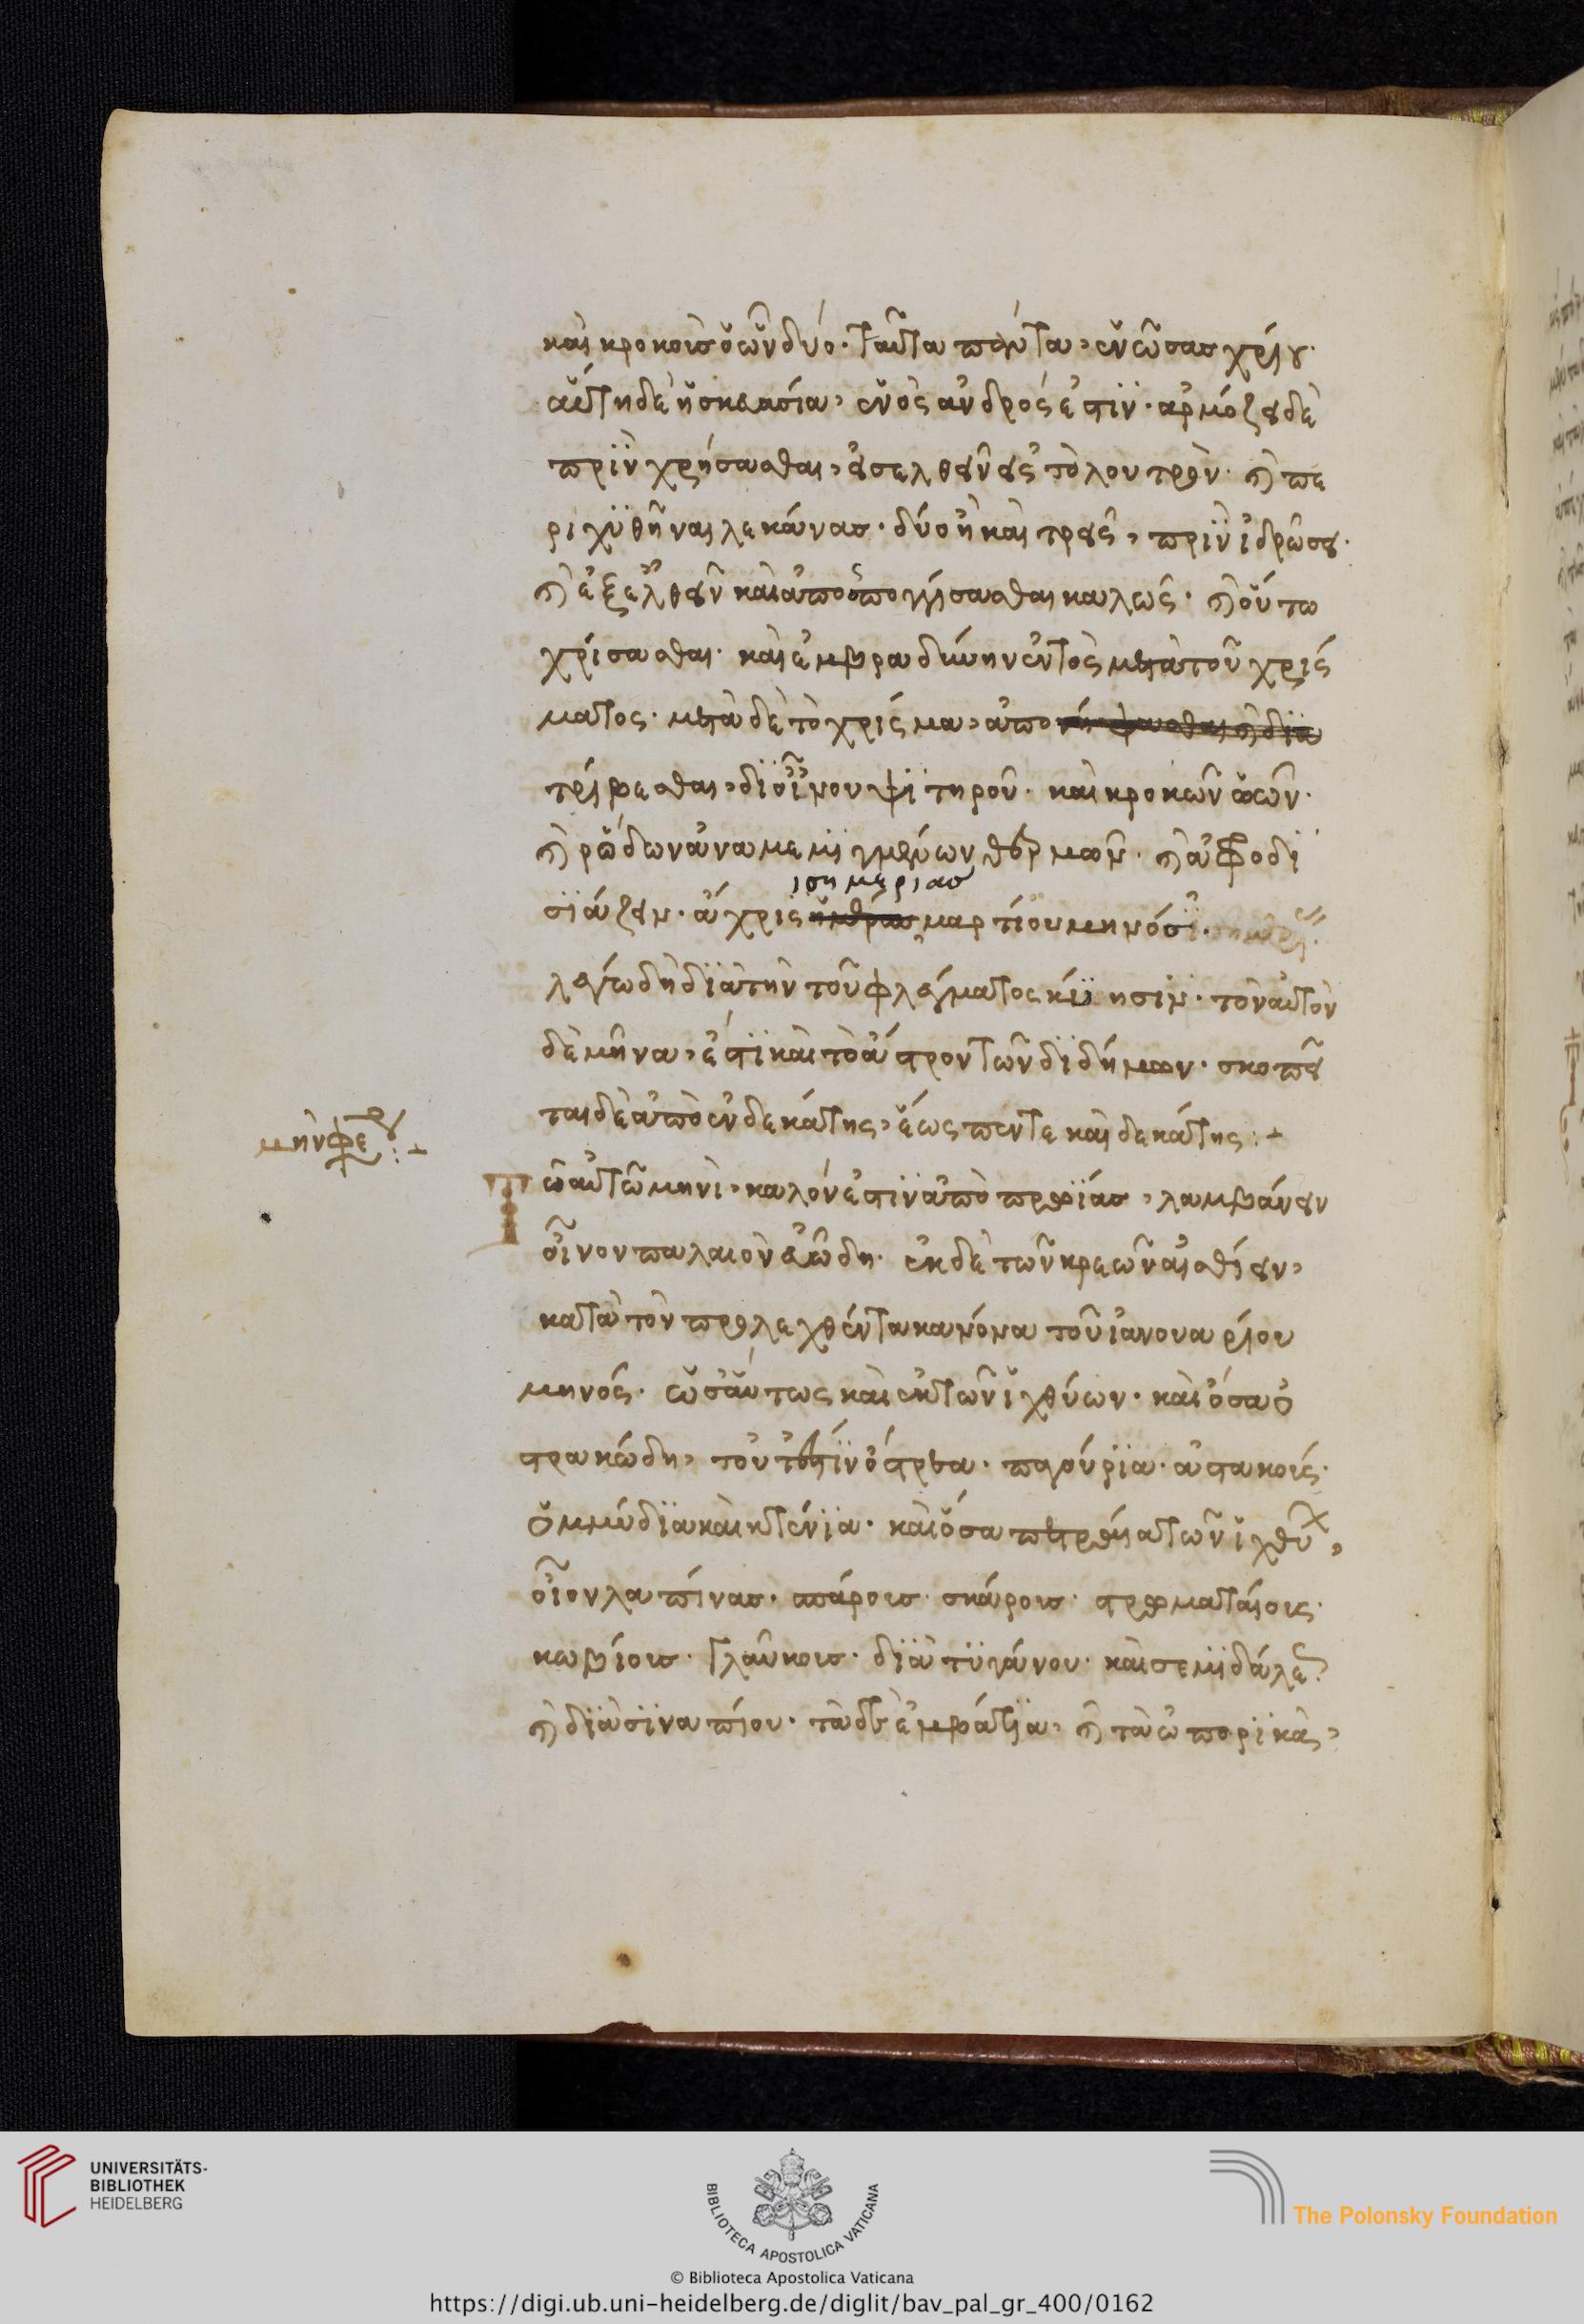 καὶ κροκοισ ὀῶν δύο· ταῦτα πάντα, ἑνώσας χρίου·
αὕτη δὲ ἡ σκευασία, ἑνὸς ἀνδρός ἐστϊν· ἁρμόζει δὲ
πρὶν χρήσασθαι, εἰσελθεῖν εἰς τὸ λουτρὸν· καὶ πε
ριχϋθῆναι λεκάνας· δύο ἢ καὶ τρεῖς, πρὶν ἱδρῶσει·
καὶ ἐξελθεῖν καὶ ἀποσπογγίσασθαι καλῶς· καὶ οὕτω
χρίσασθαι· καὶ ἐμβραδύνην ἐντὸς μετὰ τοῦ χρίσ
ματος· μετὰ δὲ τὸ χρίσμα, ἀπο
τρίβεσθαι, δϊ οἴνου ψϊτηροῦ· καὶ κροκῶν ὠῶν·
καὶ ῥόδων ἀναμεμιγμένων θερμῶν· καὶ ἀφροδι
σϊάζειν· ἄχρις ισημεριασ μαρτίου μηνόσ·
λέγω δὴ δϊὰ τὴν τοῦ φλέγματος κίνησιν· τὸν αὐτὸν
δὲ μῆνα, ἐστϊ καὶ τὸ ἄστρον τῶν δϊδύμων· σκοπεῖ
ται δὲ ἀπὸ ἑνδεκάτης, ἕως πεντε καὶ δεκάτης:+
μὴν φε:+
Τῶ αὐτῶ μηνὶ, καλόν ἐστϊν ἀπὸ πρωΐας, λαμβάνειν
οἶνον παλαιὸν εὐώδη· ἐκ δὲ τῶν κρεῶν αἰσθίειν,
κατὰ τὸν προλεχθέντα κανόνα τοῦ ἰανουαρίου
μηνός· ὡσαύτως καὶ ἐκ τῶν ἰχθύων· καὶ ὅσα ὀ
στρακώδη, τουτέστϊν ὄστρεα· παγούρϊα· ἀστακοίς·
ὀμμύδϊα καὶ κτένϊα· καὶ ὅσα πετρεῖα τῶν ἰχθύ,
οἷον λαπίνας· σπάροισ· σκάροισ· στρωματαίοις·
κωβίοισ· γλαύκοισ· δϊὰ τϋγάνου· καὶ σεμϊδάλε
καὶ δϊὰ σϊναπίου· τὰ δὲ ἐμβάτϊα, καὶ τὰ ὀπορϊκὰς,
UNIVERSITÄTS-
BIBLIOTHEK
HEIDELBERG
BIBLIOTECA APOSTOLICA VATICANA
The Polonsky Foundation
© Biblioteca Apostolica Vaticana
https://digi.ub.uni-heidelberg.de/diglit/bav_pal_gr_400/0162